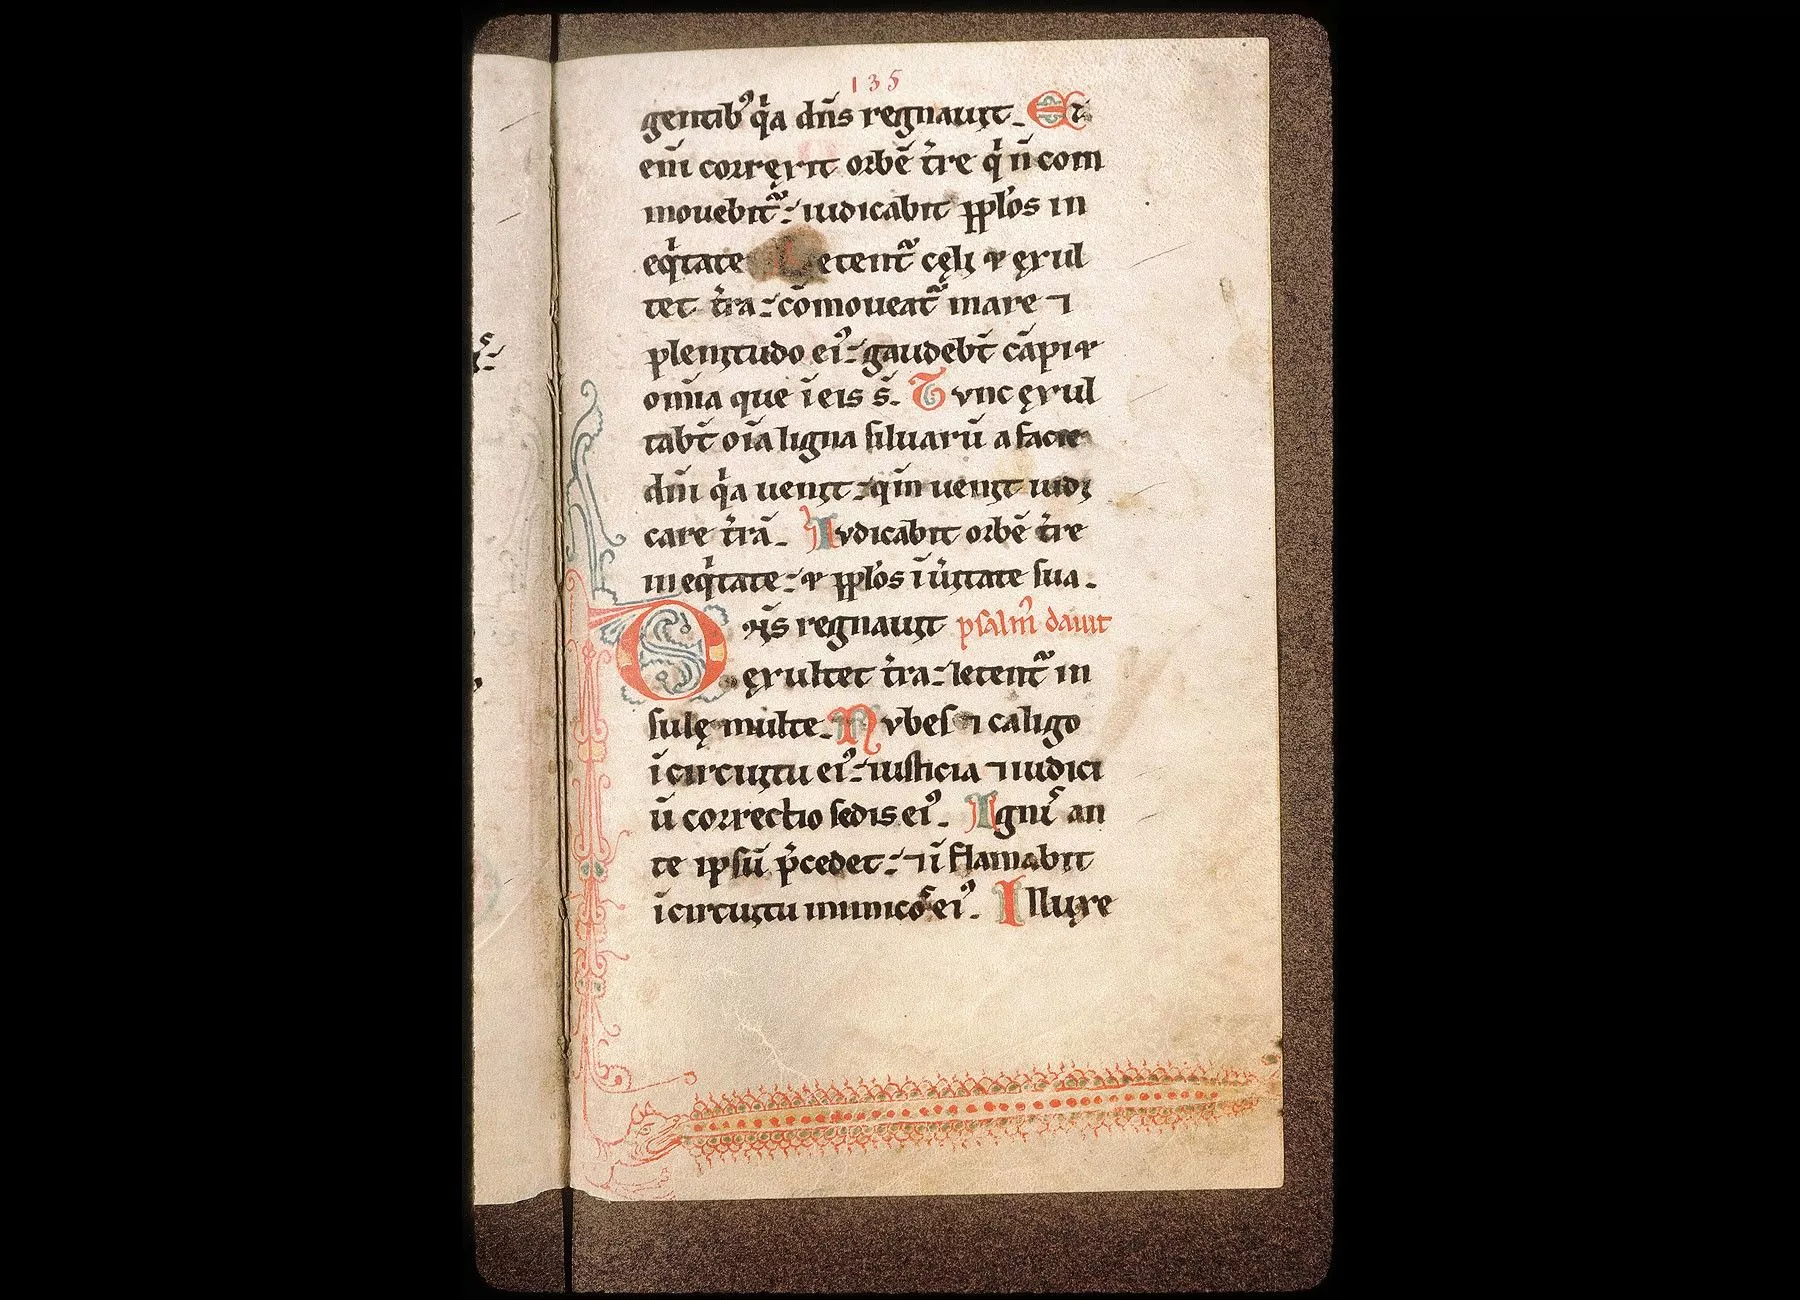 135
gentib᾽ qͥa dn̄s regnauit. Et
eni̅ correxit orbē t̄re qͥ n̄ com
mouebit᷑: iudicabit pp̄los in
eqͥtate Letent᷑ cęli ⁊ exul
tet t̄ra: cōmoueat᷑ mare ⁊
plenitudo ei᾽: gaudebt̄ cāpi ⁊
omīa que ī eis s̄. Tvnc exul
tabt̄ oīa ligna siluarū a facie
dn̄i qͥa uenit: qm̄ uenit iudi
care t̄rā. Ivdicabit orbē t̄re
in eqͥtate: ⁊ pp̄los ī ūitate sua.
Dn̄s regnauit psalm᾽ dauit
exultet t̄ra: letent᷑ in
sulę multe. Nvbes ⁊ caligo
ī circuitu ei᾽: iusticia ⁊ iudici
ū correctio sedis ei᾽. Ignis an
te ipsū p̄cedet: ⁊ ī flāmabit
ī circuitu inimicos ei᾽. Illuxe